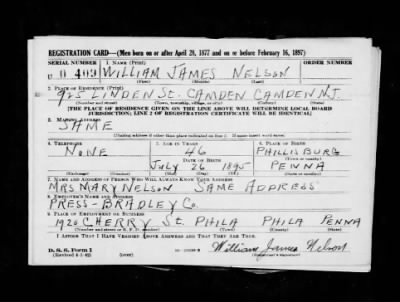 REGISTRATION CARD—(Men born on or after April 28, 1877 and on or before February 16, 1897)
SERIAL NUMBER 1. NAME (Print) ORDER NUMBER
U 0 409 WILLIAM JAMES NELSON
(First) (Middle) (Last)
2. PLACE OF RESIDENCE (Print)
925 LINDEN St. CAMDEN CAMDEN N.J.
(Number and street) (Town, township, village, or city) (County) (State)
[THE PLACE OF RESIDENCE GIVEN ON THE LINE ABOVE WILL DETERMINE LOCAL BOARD
JURISDICTION; LINE 2 OF REGISTRATION CERTIFICATE WILL BE IDENTICAL]
3. MAILING ADDRESS
SAME
[Mailing address if other than place indicated on line 2. If same insert word same]
4. TELEPHONE 5. AGE IN YEARS 6. PLACE OF BIRTH
NONE 46 PHILLISBURG
DATE OF BIRTH
July 26 1895 PENNA
7. NAME AND ADDRESS OF PERSON WHO WILL ALWAYS KNOW YOUR ADDRESS
MRS MARY NELSON SAME ADDRESS
8. EMPLOYER'S NAME AND ADDRESS
PRESS-BRADLEY Co.
9. PLACE OF EMPLOYMENT OR BUSINESS
1920 CHERRY St. PHILA PHILA PENNA
(Number and street or R. F. D. number) (Town) (County) (State)
I AFFIRM THAT I HAVE VERIFIED ABOVE ANSWERS AND THAT THEY ARE TRUE.
D. S. S. Form 1 William James Nelson
(Revised 4-1-42) (Registrant's signature)